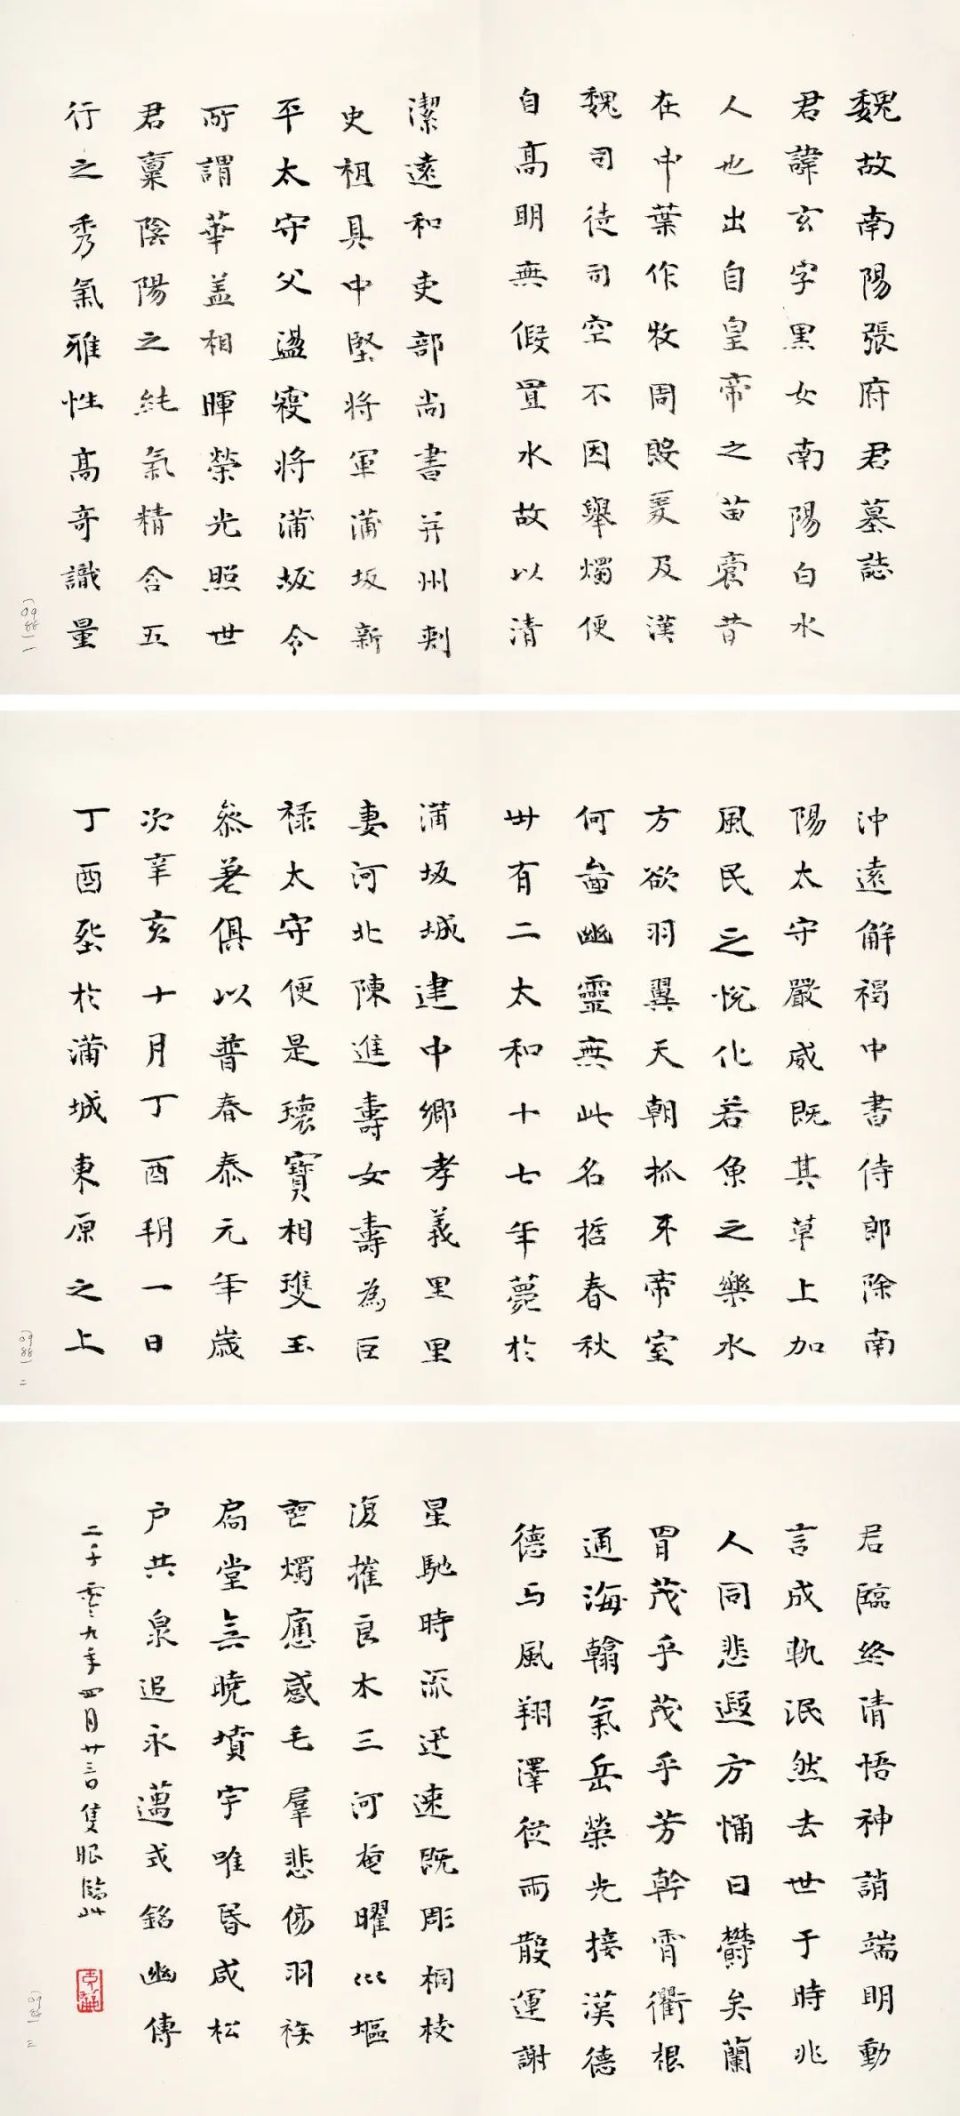 魏故南陽張府君墓誌
君諱玄字黑女南陽白水
人也出自皇帝之苗裔昔
在中葉作牧周殷爰及漢
魏司徒司空不因舉燭便
自高明無假置水故以清
潔遠和吏部尚書并州刾
史祖具中堅將軍蒲坂新
平太守父盪寇將蒲坂令
所謂華盖相暉榮光照世
君稟陰陽之純氣精含五
行之秀氣雅性高奇識量
沖遠解褐中書侍郎除南
陽太守嚴威既其草上加
風民之悅化若魚之樂水
方欲羽翼天朝抓牙帝室
何畫幽靈無此名哲春秋
卅有二太和十七年薨於
蒲坂城建中鄉孝義里里
妻河北陳進壽女壽為巨
祿太守便是瓌寶相雙玉
叅差俱以普春泰元年歲
次辛亥十月丁酉朔一日
丁酉塟於蒲城東原之上
君臨終清悟神誚端明動
言成軌泯然去世于時兆
人同悲遐方慟日欝矣蘭
胃茂乎茂乎芳幹霄衢根
通海翰氣岳榮光接漢德
德与風翔澤從雨散運謝
星馳時流迅速既彫桐枝
復摧良木三河奄曜巛堰
喪燭痷感毛羣悲傷羽族
扃堂無曉墳宇唯昏咸松
户共泉追永邁式銘幽傳
二千零九年四月廿三日隻眼臨此